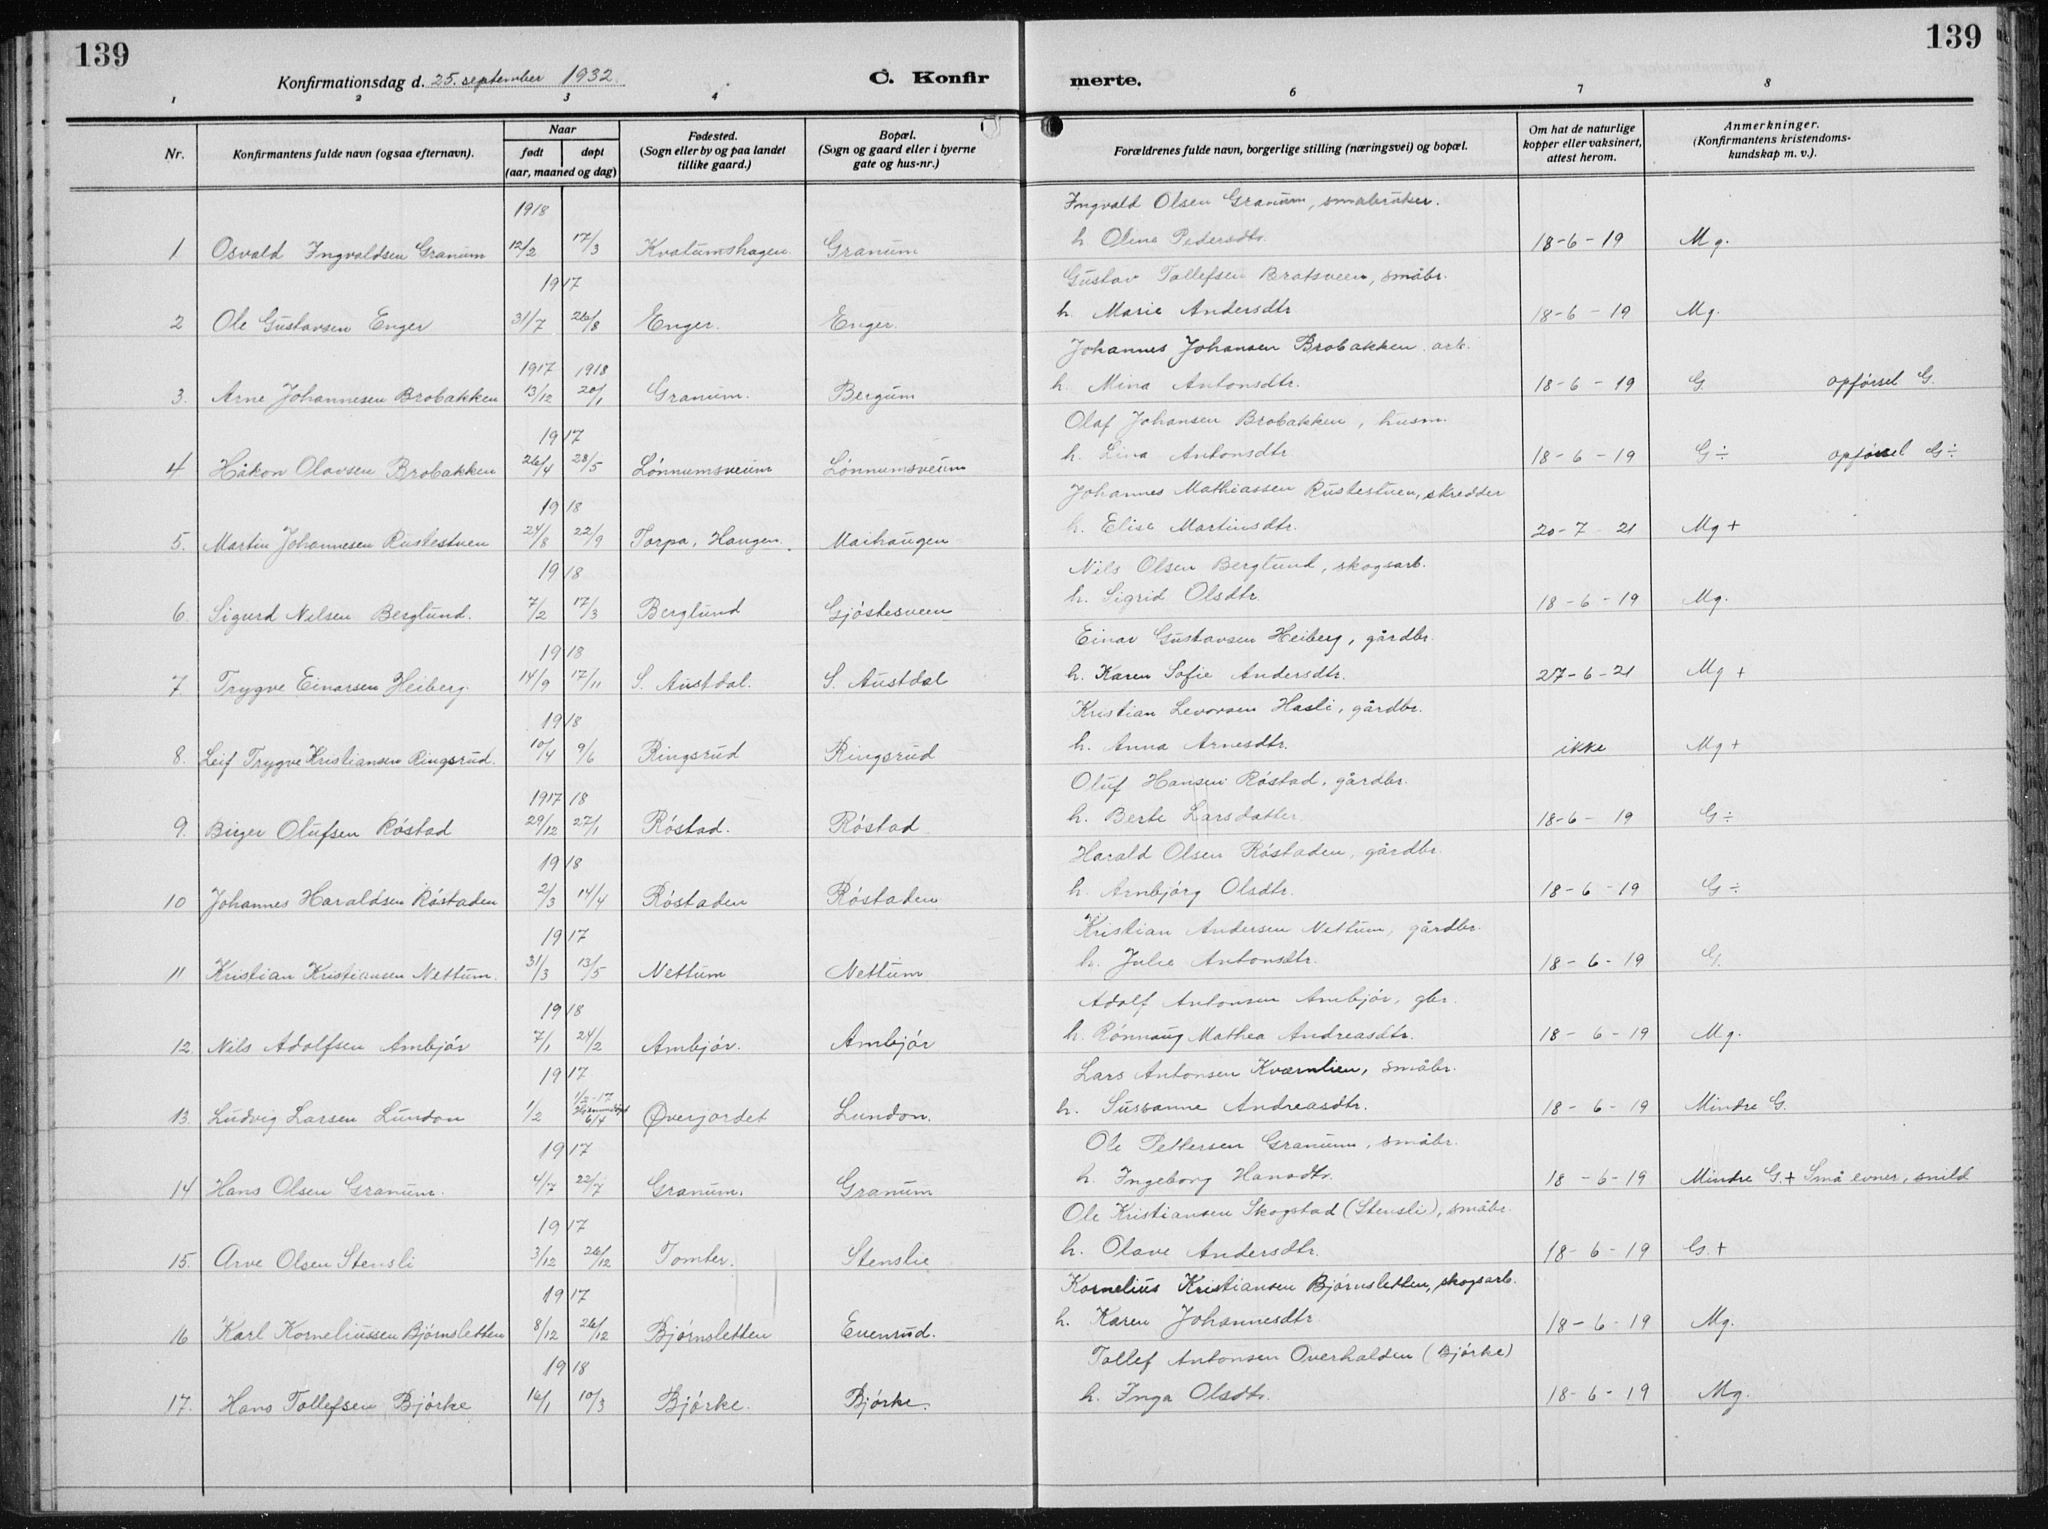 139
139
Konfirmationsdag d. 25. september 1932.
C. Konfir merte.
1 2 3 4 6 7 8
Nr.
Konfirmantens fulde navn (ogsaa efternavn).
Naar
født
døpt
(aar, maaned og dag)
Fødested.
(Sogn eller by og paa landet
tillike gaard.)
Bopæl.
(Sogn og gaard eller i byerne
gate og hus-nr.)
Forældrenes fulde navn, borgerlige stilling (næringsvei) og bopæl.
Om hat de naturlige
kopper eller vaksinert,
attest herom.
Anmerkninger.
(Konfirmantens kristendoms-
kundskap m. v.).
1918 Ingvald Olsen Granum, småbruker.
1 Osvald Ingvaldsen Granum 12/2 17/3 Kvatumshagen Granum h. Oline Pedersdtr. 18-6-19 Mg.
1917 Gustav Tollefsen Bratsveen, småbr.
2 Ole Gustavsen Enger 31/7 26/8 Enger. Enger. h. Marie Andersdtr 18-6-19 Mg.
1917 1918 Johannes Johansen Brobakken arb.
3. Arne Johannesen Brobakken 13/12 20/1 Granum. Bergum h. Mina Antonsdtr. 18-6-19 G. opførsel G.
1917 Olaf Johansen Brobakken, husm.
4 Håkon Olavsen Brobakken 26/4 28/5 Lønnumsveum Lønnumsveum h. Lina Antonsdtr 18-6-19 G÷ opførsel G÷
1918 Johannes Mathiassen Rustestuen, skredder
5. Martin Johannesen Rustestuen 24/8 22/9 Torpa, Haugen. Maihaugen h. Elise Martinsdtr. 20-7-21 Mg+
1918 Nils Olsen Berglund, skogsarb.
6 Sigurd Nilsen Berglund. 7/2 17/3 Berglund Gjøstesveen h. Sigrid Olsdtr. 18-6-19 Mg.
1918 Einar Gustavsen Heiberg, gårdbr.
7 Trygve Einarsen Heiberg. 14/9 17/11 S. Austdal. S. Austdal h. Karen Sofie Andersdtr. 27-6-21 Mg+
1918 Kristian Levorsen Hasli, gårdbr.
8. Leif Trygve Kristiansen Ringsrud. 10/4 9/6 Ringsrud Ringsrud h. Anna Arnesdtr. ikke Mg+
1917 18 Oluf Hansen Røstad, gårdbr.
9. Birger Olufsen Røstad 29/12 27/1 Røstad. Røstad h. Berte Larsdatter. 18-6-19 G÷
1918 Harald Olsen Røstaden, gårdbr.
10 Johannes Haraldsen Røstaden 2/3 14/4 Røstaden Røstaden h. Arnbjørg Olsdtr. 18-6-19 G÷
1917 Kristian Andersen Nettum, gårdbr.
11 Kristian Kristiansen Nettum. 31/3 13/5 Nettum Nettum h. Julie Antonsdtr. 18-6-19 G.
1918 Adolf Antonsen Ambjør, gbr.
12. Nils Adolfsen Ambjør 7/1 24/2 Ambjør. Ambjør h. Rønnaug Mathea Andreasdtr. 18-6-19 Mg.
1917 Lars Antonsen Kværnlien, småbr.
13. Ludvig Larsen Lundon 1/2 1/2-17 hjemmedøpt 6/4 Øverjordet Lundon. h. Sussanne Andreasdtr. 18-6-19 Mindre G.
1917 Ole Pettersen Granum, småbr.
14 Hans Olsen Granum. 4/7 22/7 Granum. Granum h. Ingeborg Hansdtr. 18-6-19 Mindre G.+ Små evner, snild
1917 Ole Kristiansen Skogstad (Stensli), småbr.
15. Arve Olsen Stensli 3/12 26/12 Tomter. Stenslie h. Olave Andersdtr. 18-6-19 G.+
1917 Kornelius Kristiansen Bjørnsletten, skogsarb.
16 Karl Korneliussen Bjørnsletten 8/12 26/12 Bjørnsletten Evenrud. h. Karen Johannesdtr 18-6-19 Mg.
1918 Tollef Antonsen Overhalden (Bjørke)
17. Hans Tollefsen Bjørke 16/1 10/3 Bjørke. Bjørke. h. Inga Olsdtr. 18-6-19 Mg.